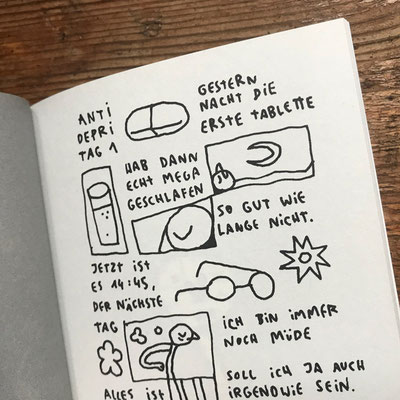 ANTI
DEPRI
TAG 1
GESTERN
NACHT DIE
ERSTE TABLETTE
HAB DANN
ECHT MEGA
GESCHLAFEN
SO GUT WIE
LANGE NICHT.
JETZT IST
ES 14:45,
DER NÄCHSTE
TAG
ICH BIN IMMER
NOCH MÜDE
ALLES IST
SOLL ICH JA AUCH
IRGENDWIE SEIN.